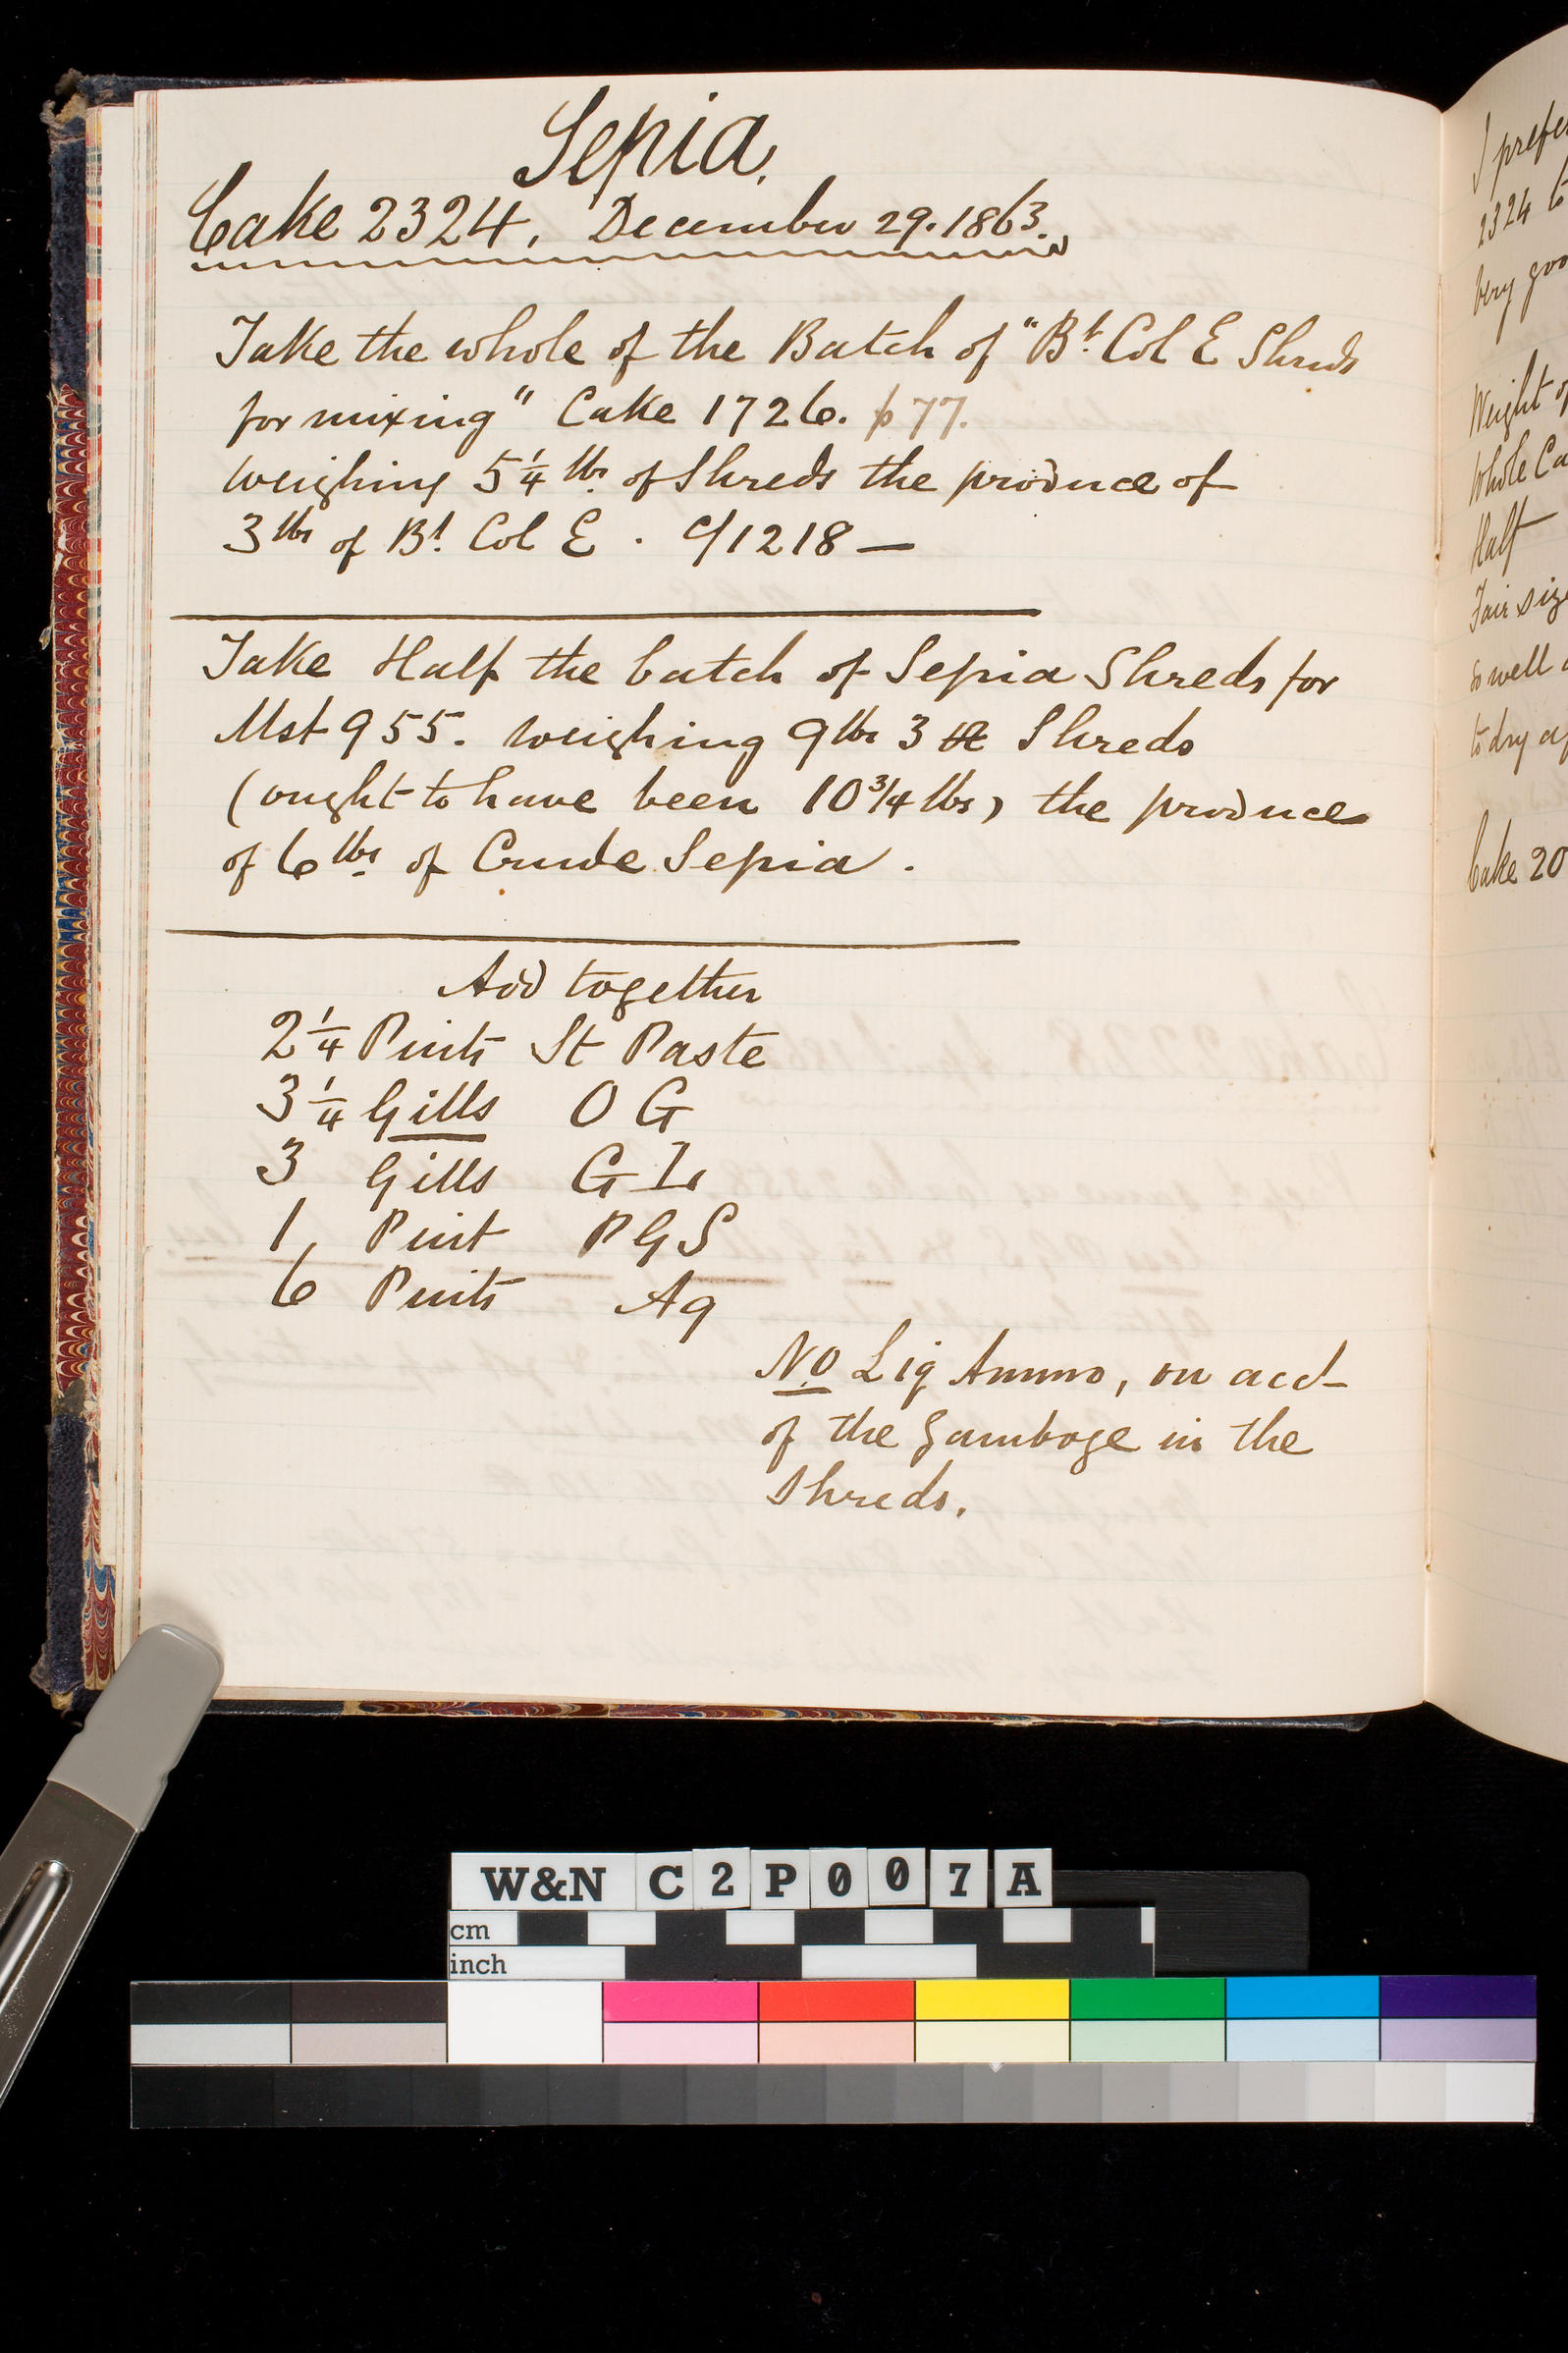 Sepia.
Cake 2324. December 29. 1863.
Take the whole of the Batch of "Bt. Col E Shreds
for mixing" Cake 1726. p 77.
weighing 5 1/4 lbs. of Shreds the produce of
3 lbs of Bt. Col E. c/1218 —
Take Half the batch of Sepia Shreds for
Mst 955. weighing 9 lbs 3 Shreds
(ought to have been 10 3/4 lbs) the produce
of 6 lbs. of Crude Sepia.
Add together
2 1/4 Pints St Paste
3 1/4 Gills O G
3 Gills G I.
1 Pint P G S
6 Pints Aq
No Liq Ammo, on acct
of the Gamboge in the
Shreds.
I prefer
2324 to
Very good
Weight of
Whole Ca
Half
Fair size
so well
to dry
Cake 20
W&N C2P007A
cm
inch